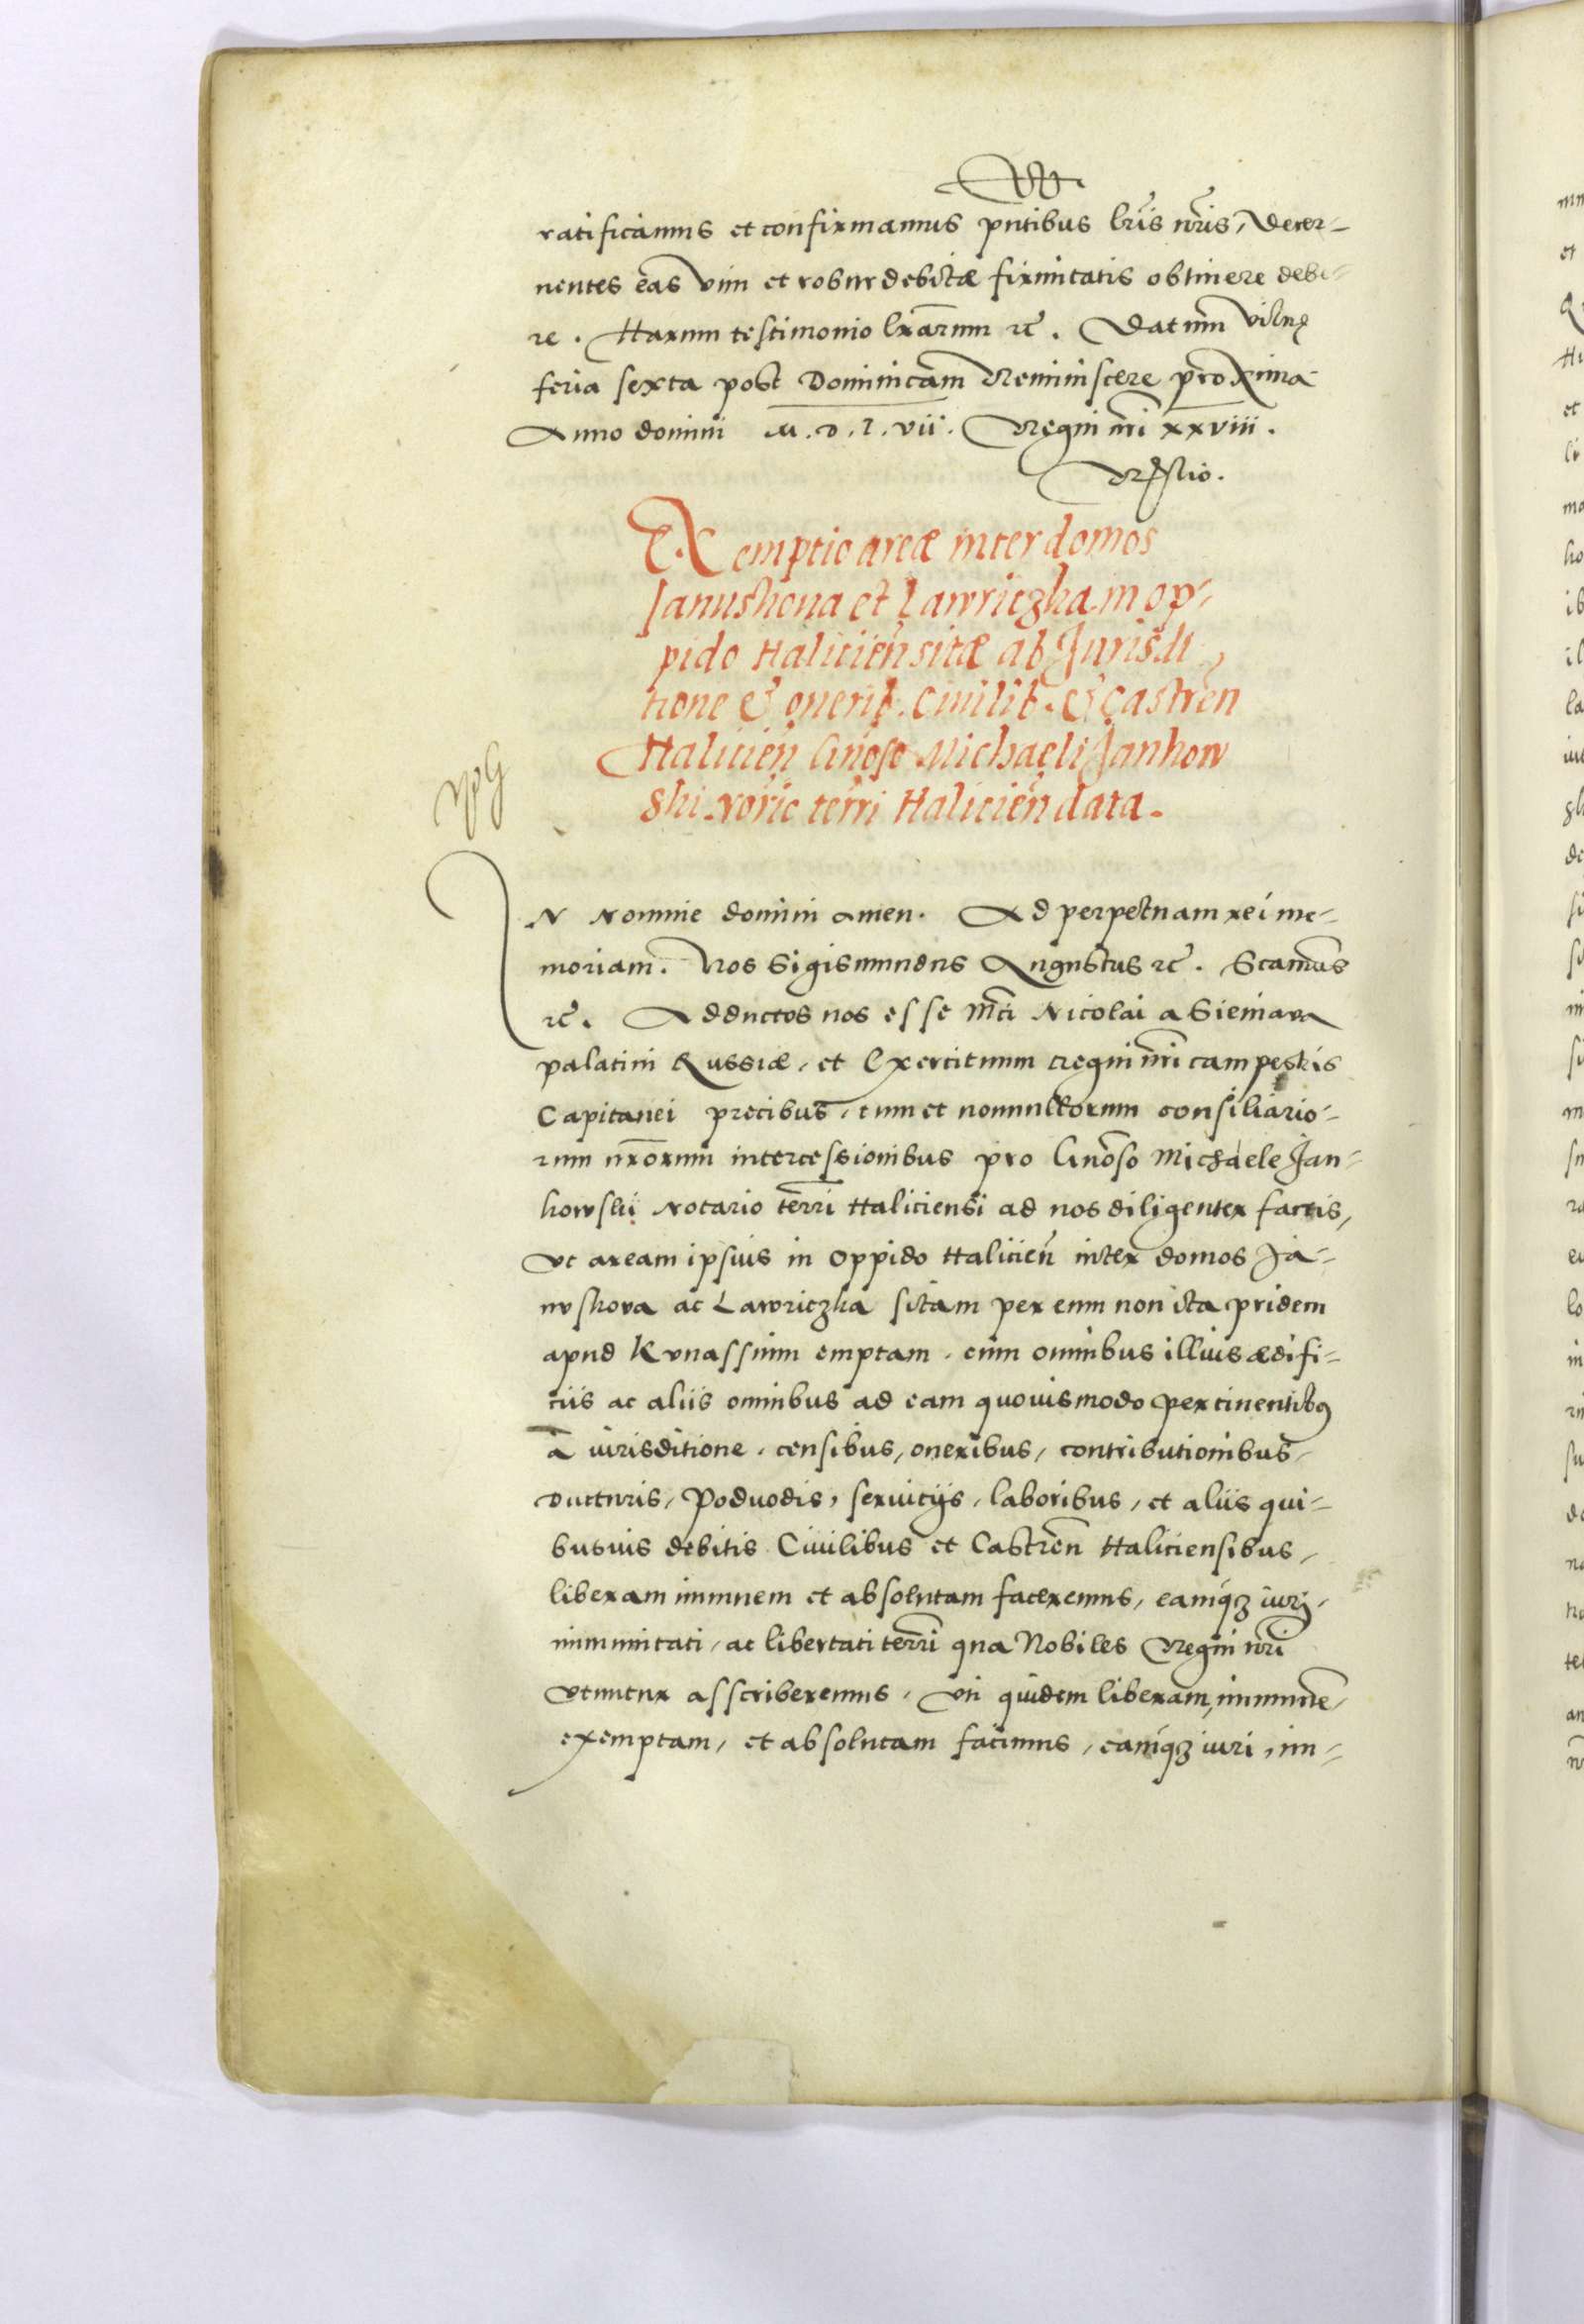 ratificamus et confirmamus pntibus lris nris, decer-
nentes eas vim et robur debitæ firmitatis obtinere debe-
re. Harum testimonio lrarum rc. Datum Vilnę
feria sexta post Dominicam Reminiscere proxima
Anno domini M.D.L.vii. Regni nri xxviii.
Exemptio areæ inter domos
Janushova et Lawriczka in op-
pido Haliciẽn sitæ ab Jurisdi
tione & onerib. Ciuilib. & Castreñ
Halicień Gnoso Michaeli Jankow
ski notrio terri Haliciẽn data.
IN Nomine domini amen. Ad perpetuam rei me-
moriam. Nos Sigismundus Augustus rc. Scamus
rc. Adductos nos esse Mci Nicolai a Sieniava
palatini Russiæ, et Exercituum regni nri campestris
Capitanei precibus, tum et nonnullorum consiliario-
rum nrorum intercessionibus pro Gnoso Michaele Jan-
kowski Notario terri Haliciensi ad nos diligenter factis,
vt aream ipsius in oppido Haliciẽn inter domos Ja-
nuskova ac Lawriczka sitam per eum non ita pridem
apud Kunassium emptam, cum omnibus illius ædifi-
ciis ac aliis omnibus ad eam quouismodo pertinentibus
a iurisditione, censibus, oneribus, contributionibus,
ducturis, Podvodis, seruitijs, laboribus, et aliis qui-
busuis debitis Ciuilibus et Castrẽn Haliciensibus,
liberam imunem et absolutam faceremus, eamq3 iuri,
immunitati, ac libertati terri qua Nobiles Regni nri
vtuntur asscriberemus, vti quidem liberam, immune,
exemptam, et absolutam facimus, eamq3 iuri, im-